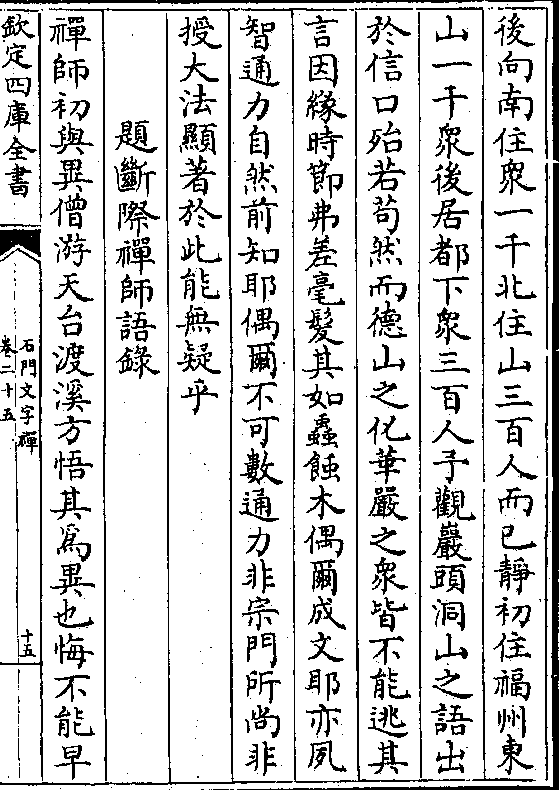 後向南住衆一千北住山三百人而已靜初住福州東
山一千衆後居都下衆三百人予觀巖頭洞山之語出
於信口殆若茍然而德山之化華嚴之衆皆不能逃其
言因緣時節弗差毫髮其如蟲蝕木偶爾成文耶亦夙
智通力自然前知耶偶爾不可數通力非宗門所尚非
授大法顯著於此能無疑乎
題斷際禪師語錄
禪師初與異僧游天台渡溪方悟其爲異也悔不能早
欽定四庫全書
石門文字禪
卷二十五
十五